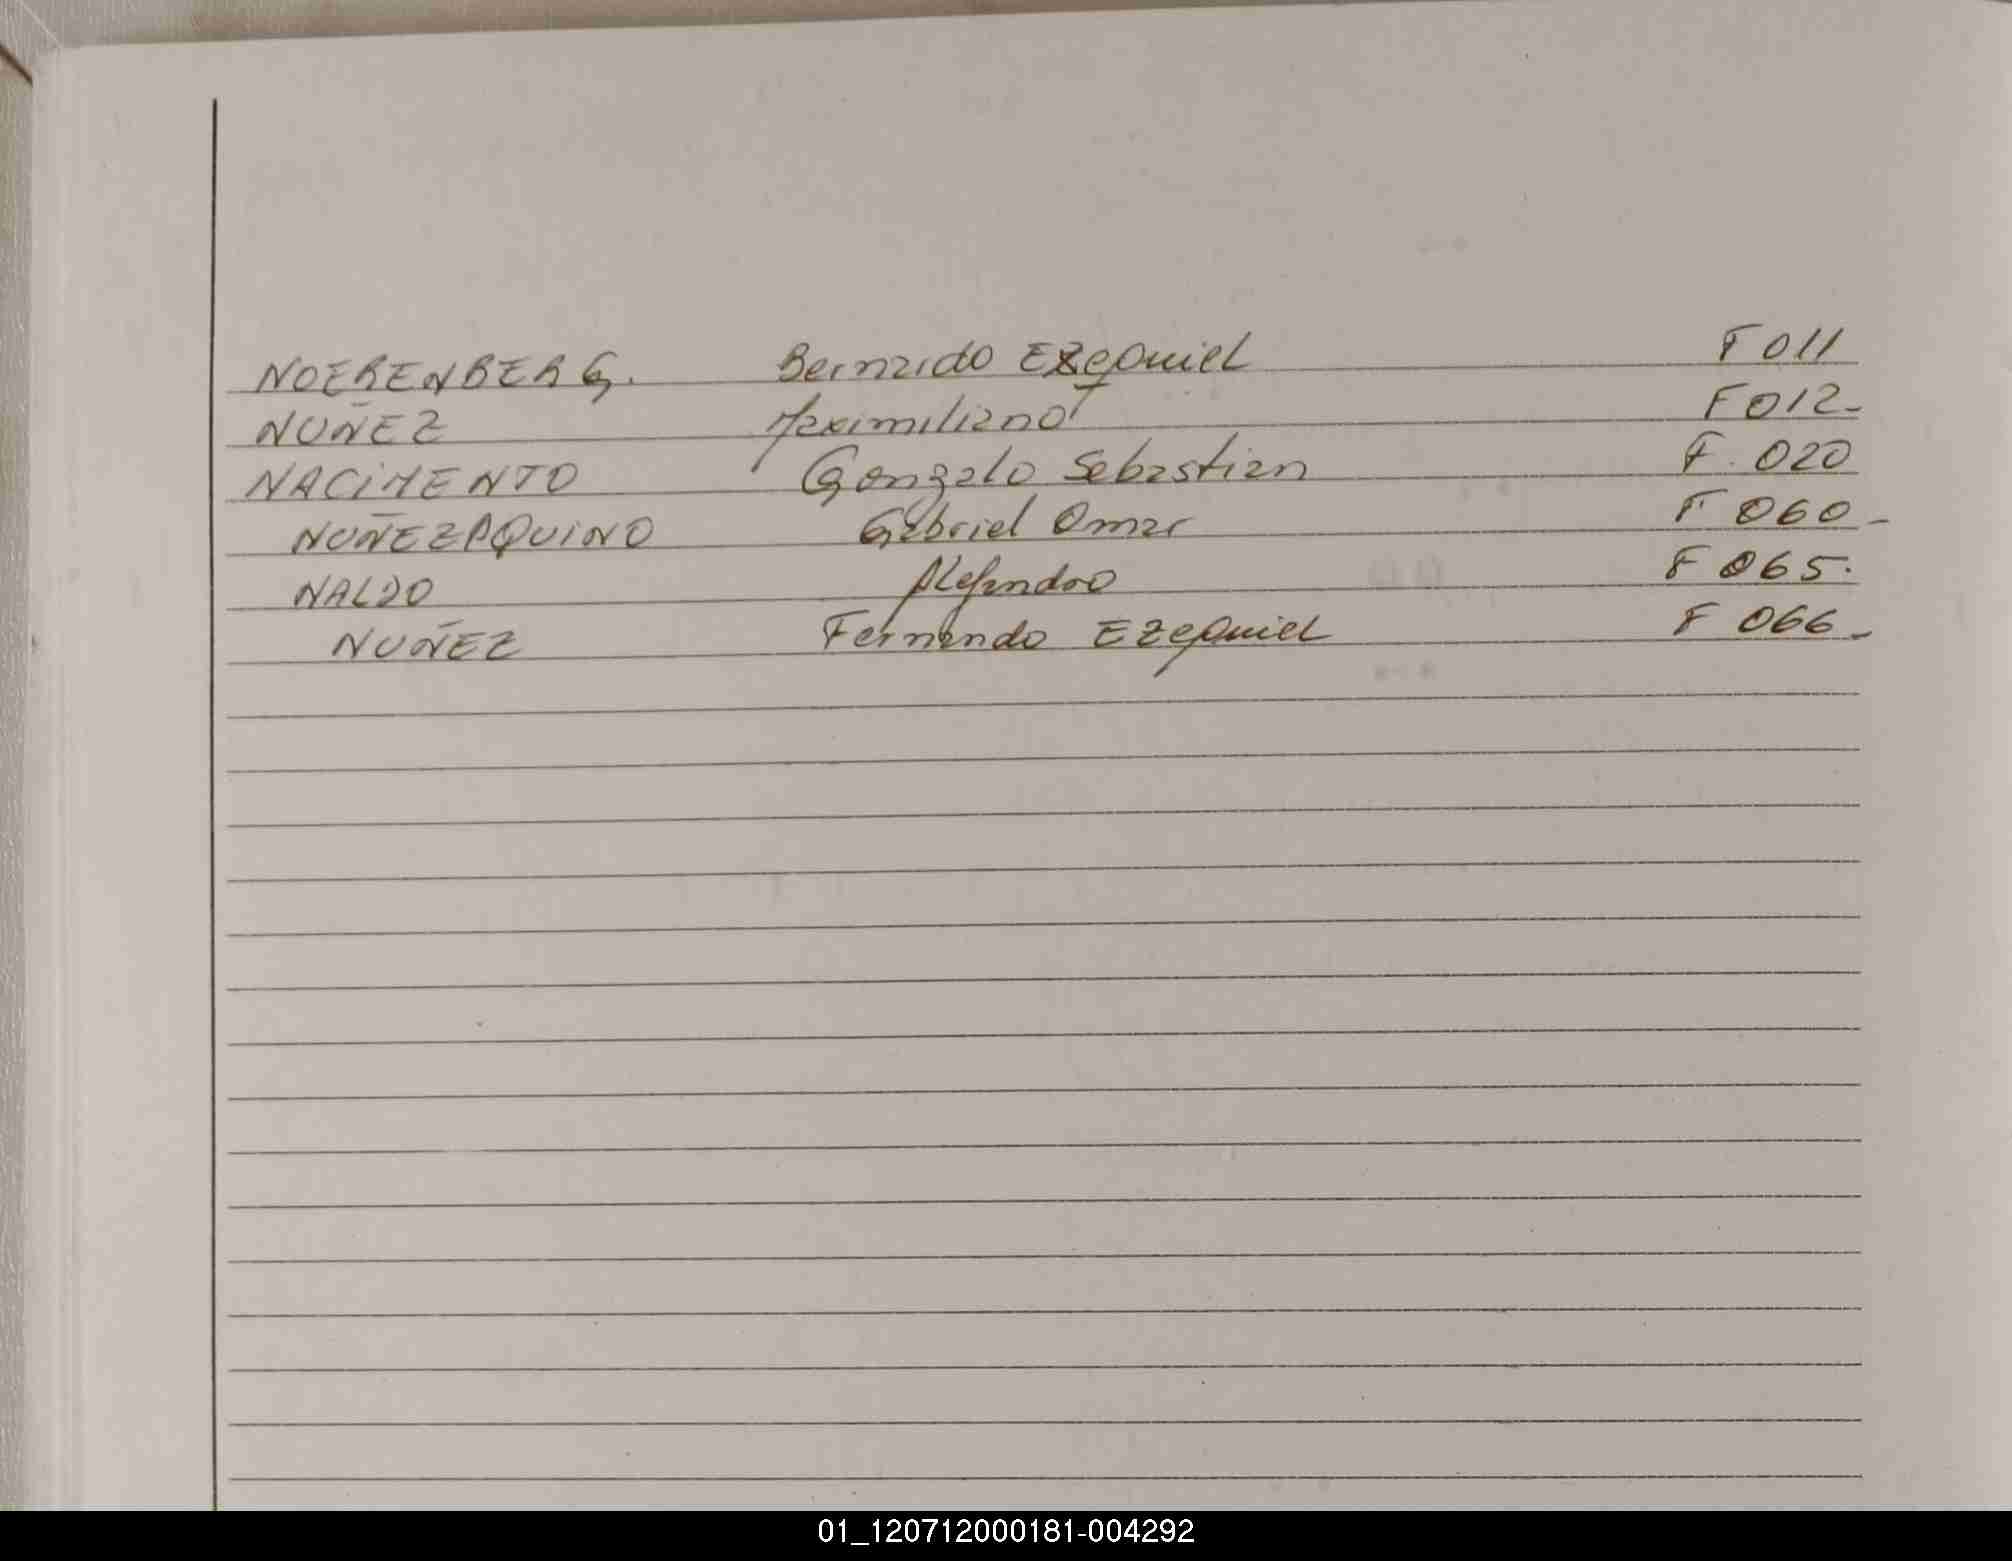 NOERENBERG. Bernardo Ezequiel F 011
NUÑEZ Maximiliano F 012-
NACIMENTO Gonzalo Sebastian F. 020
NUÑEZ AQUINO Gabriel Omar F 060-
NALDO Alejandro F 065.
NUÑEZ Fernando Ezequiel F 066-
01_120712000181-004292